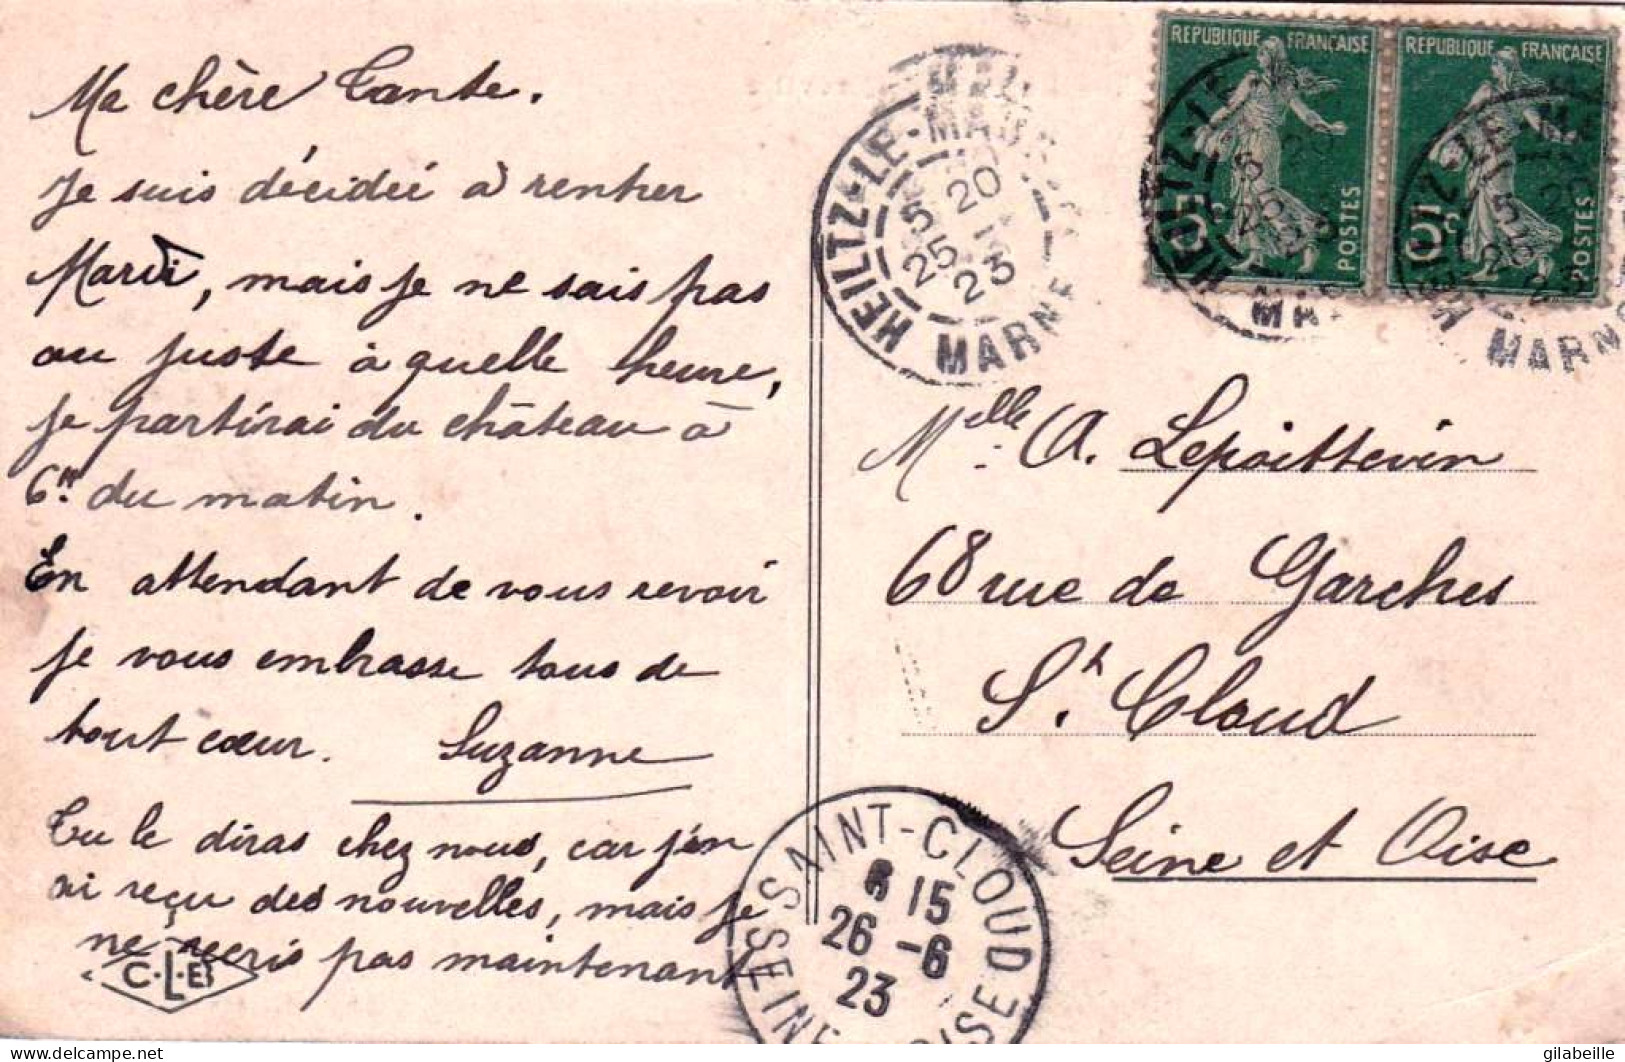 Ma chère Tante.
Je suis décidée à rentrer
Mardi, mais je ne sais pas
au juste à quelle heure,
je partirai du château à
6h du matin.
En attendant de vous revoir
je vous embrasse tous de
tout cœur. Suzanne
Tu le diras chez nous, car j'en
ai reçu des nouvelles, mais je
ne récris pas maintenant
C·L·E
HEILTZ-LE-MAU
5 20
25
23
MARNE
REPUBLIQUE FRANÇAISE
5c
POSTES
REPUBLIQUE FRANÇAISE
5c
POSTES
Melle A. Lepoittevin
68 rue de Garches
St. Cloud
Seine et Oise
SAINT-CLOUD
6 15
26 -6
23
SEINE OISE
delcampe.net
gilabeille